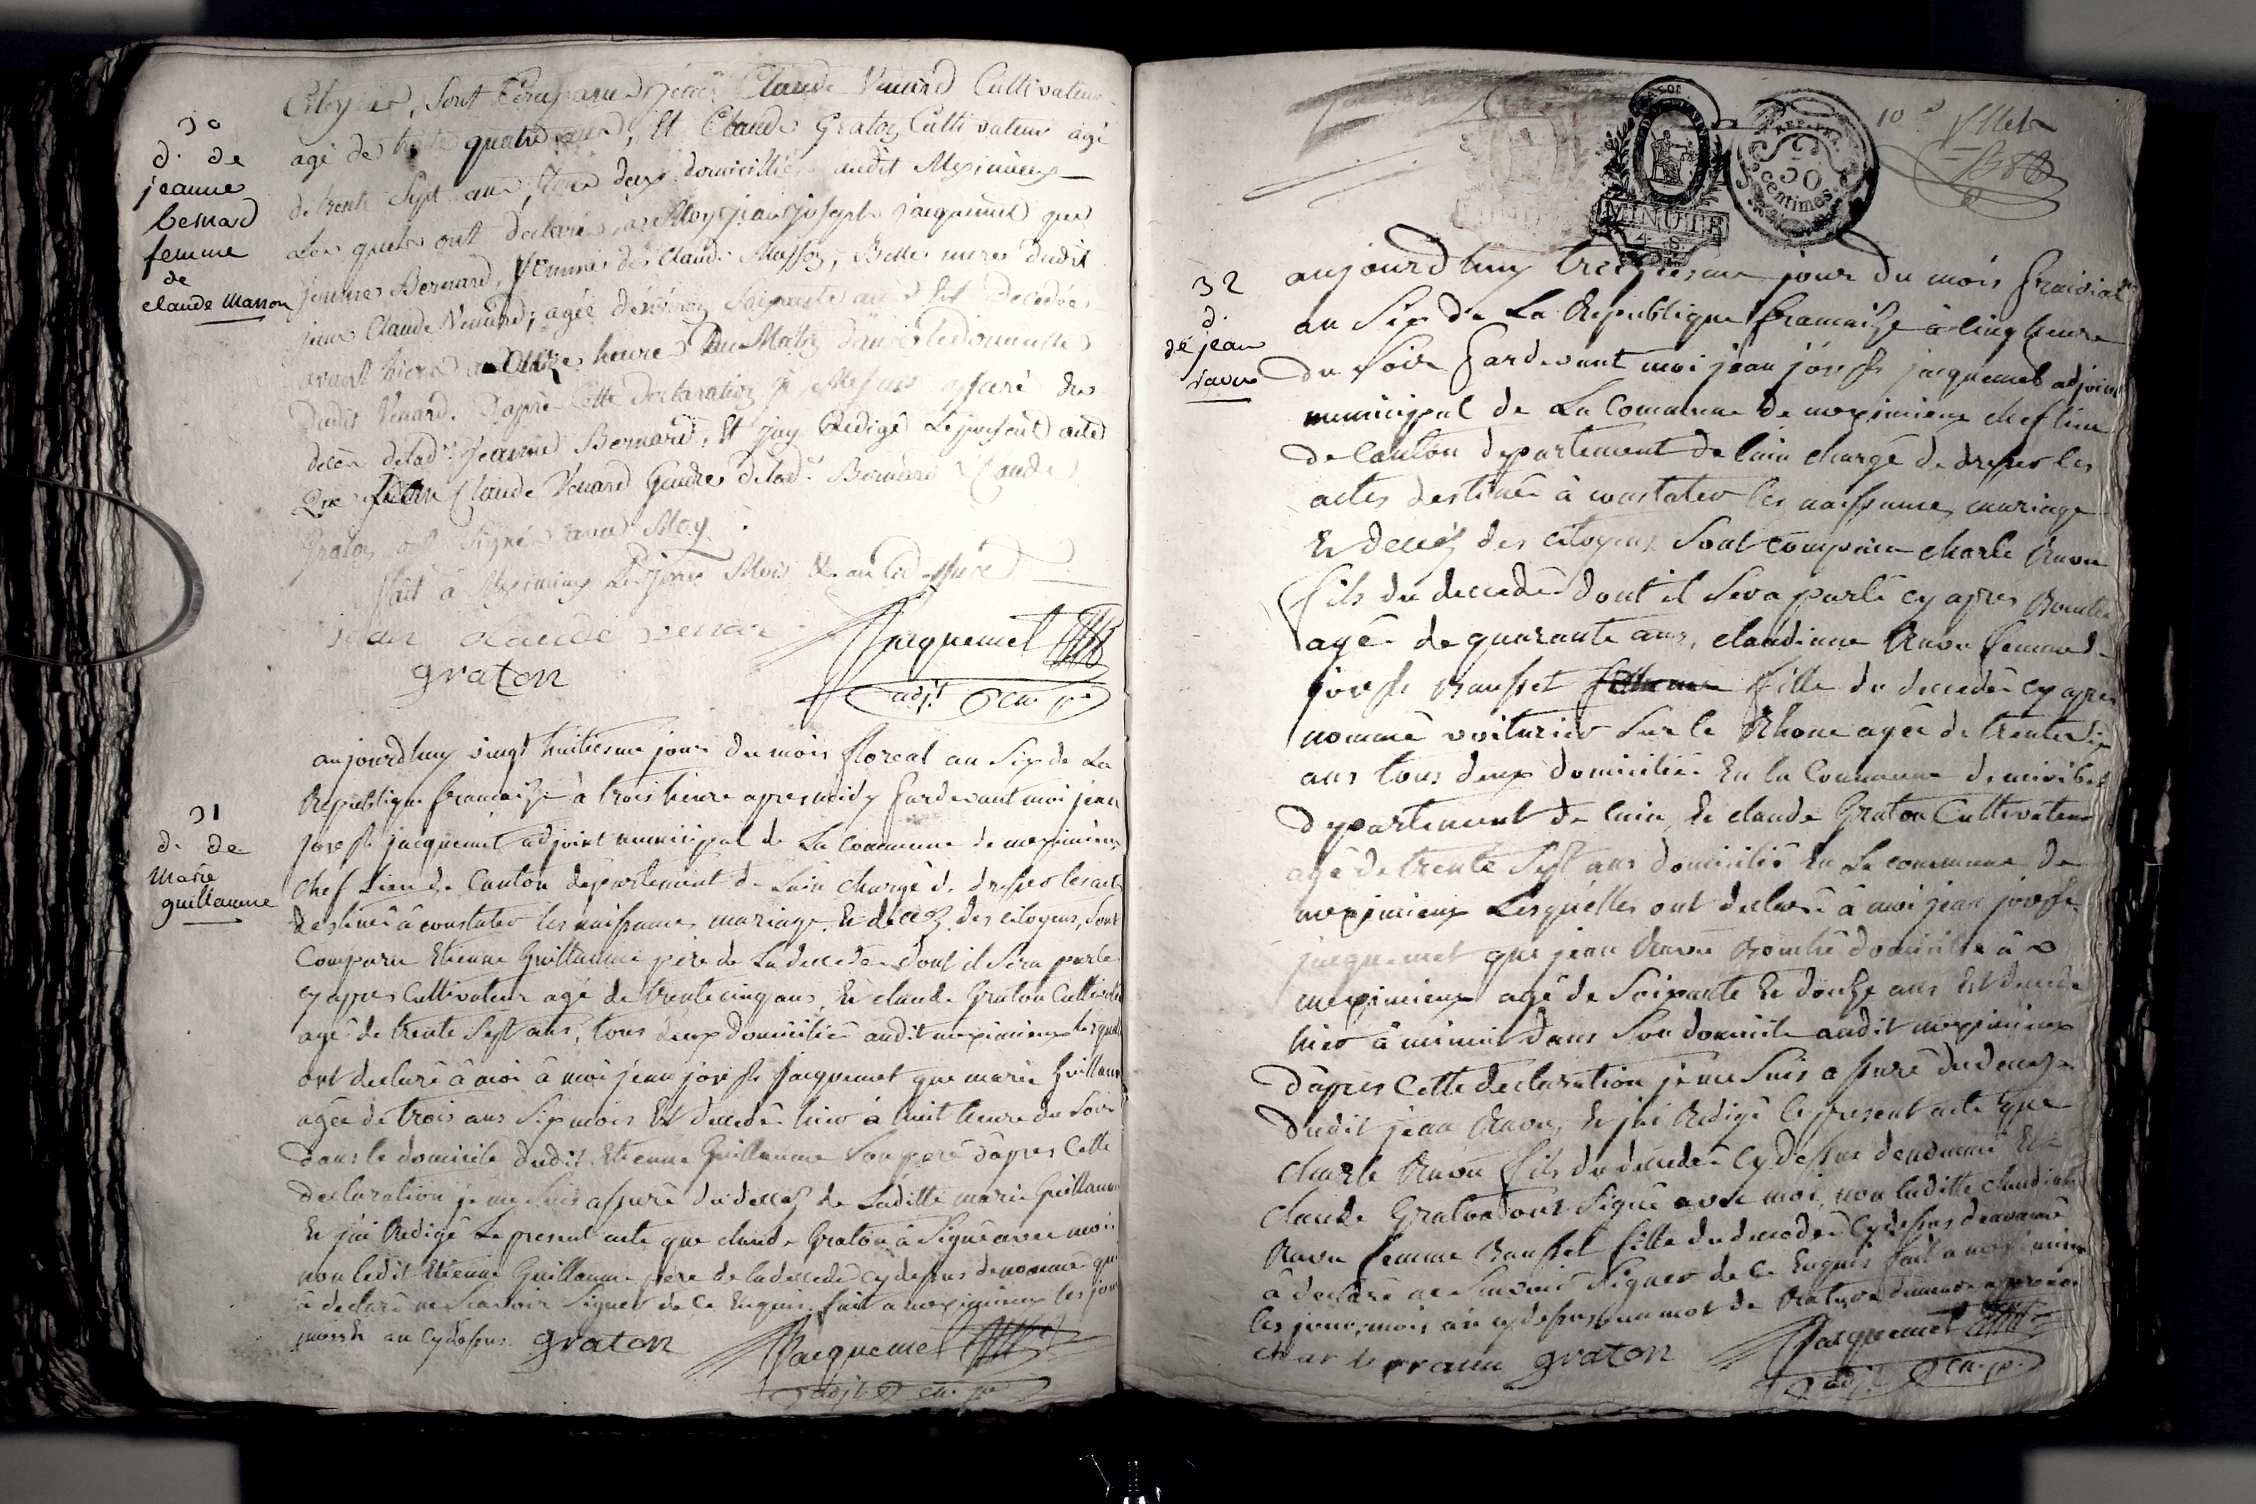 30
d. de
jeanne
bernard
femme
de
claude Masson
Citoyens, Sont Comparus jean Claude Venard Cultivateur
agé de trente quatre ans, Et Claude Graton Cultivateur agé
de trente Sept ans, tous deux domicilliés audit Meximieux
Les quels ont declaré a Moy jean joseph jacquemet que
jeanne Bernard, femme de Claude Masson, Belle mere dudit
jean Claude Venard, agée d'environ Soixante ans Est Decedée
avant hier a heures du Matin dans le domicille
dudit Venard. D'après Cette declaration je Me suis assuré du
decès de lad.e jeanne Bernard, Et j'ay Redigé Le present acte
Que jean Claude Venard Gendre de lad.e Bernard Claude
Graton ont Signé avec Moy
fait à Meximieux Les jour Mois & an Cid
jean claude venar
graton
Jacquemet
adjt
31
d. de
Marie
guillaume
aujourdhuy vingt huitiesme jour du mois floreal an Six de La
Republique francaize à trois heure apres midy pardevant moi jean
joseph jacquemet adjoint municipal de La Commune de meximieux
chef Lieu de Canton département de Lain chargé de dresser les actes
destinés à constater les naissances mariage et décèz des citoyens, Sont
Comparu Etienne Guillaume père de La decedée dont il Sera parlé
cy apres Cultivateur agé de trente cinq ans, Et claude Graton Cultivateur
agé de trente Sept ans, tous deux domicilié audit meximieux les quels
ont declaré à moi à moi jean joseph Jacquemet que marie Guillaume
agée de trois ans Six mois Est decedée hier à huit heure du Soir
dans le domicile dudit Etienne Guillaume Son pere d'apres Cette
declaration je me Suis assuré du decez de Laditte marie Guillaume
Et j'ai Redigé Le present acte que claude Graton à Signé avec moi
non ledit Etienne Guillaume père de la decedé cy dessus denommé qui
à declaré ne Scavoir Signer de Ce Enquis fait a meximieux les jour
mois & an cy dessus graton
Jacquemet
adjt
10
MINUTE
REP. FRA.
50
centimes
32
d.
de jean
ravu
aujourdhuy treiziesme jour du mois prairial
an Six de La Republique francaize à cinq heure
du Soir pardevant moi jean joseph jacquemet adjoint
municipal de La Commune de meximieux chef lieu
de Canton departement de lain chargé de dresser les
actes destinés à constater les naissances mariage
Et decez des citoyens Sont comparu charle Ravu
fils du decedé dont il Sera parlé cy apres
agé de quarante ans, claudinne Ravu femme de
joseph Bausset fille du decedé cy apres
nommé voiturier Sur le Rhone agée de trente Six
ans tous deux domicilié En La Commune de miribel
departement de lain, Et claude Graton Cultivateur
agé de trente Sept ans domicilié En La commune de
meximieux Lesquelles ont declaré à moi jean joseph
jacquemet que jean Ravu domicilié à
meximieux agé de Soixante Et douze ans Est decedé
hier à minuit dans Son domicile audit meximieux
d'apres Cette declaration je me Suis assuré du decez
dudit jean Ravu, Et j'ai Redigé le present acte que
Charle Ravu fils du decedé Cy dessus denommé Et
claude Graton ont Signé avec moi, non laditte claudine
Ravu femme Bausset fille du decedé Cy dessus denommé
à declaré ne Savoir Signer de Ce Enquis fait a meximieux
les jour, mois an cy dessus un mot de Rature
charle ravu graton
Jacquemet
adjt